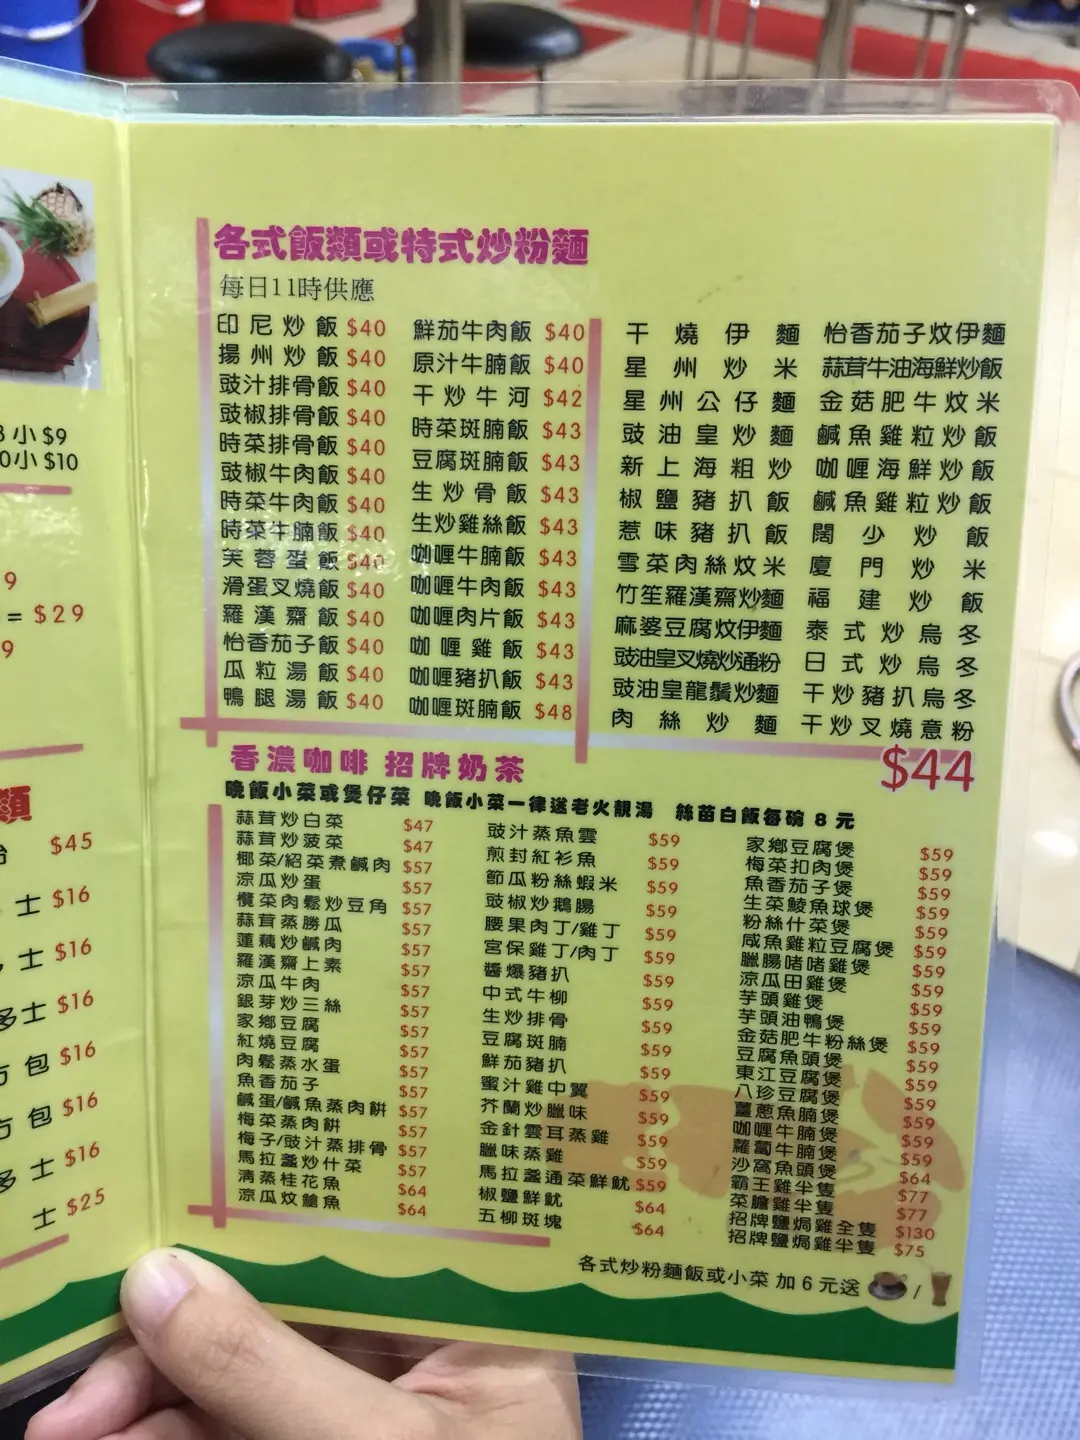 小$9
小$10
9
= $29
9
類
$45
士 $16
士 $16
多士 $16
方包 $16
方包 $16
多士 $16
士 $25
各式飯類或特式炒粉麵
每日11時供應
印尼炒飯 $40
揚州炒飯 $40
豉汁排骨飯 $40
豉椒排骨飯 $40
時菜排骨飯 $40
豉椒牛肉飯 $40
時菜牛肉飯 $40
時菜牛腩飯 $40
芙蓉蛋飯 $40
滑蛋叉燒飯 $40
羅漢齋飯 $40
怡香茄子飯 $40
瓜粒湯飯 $40
鴨腿湯飯 $40
鮮茄牛肉飯 $40
原汁牛腩飯 $40
干炒牛河 $42
時菜斑腩飯 $43
豆腐斑腩飯 $43
生炒骨飯 $43
生炒雞絲飯 $43
咖喱牛腩飯 $43
咖喱牛肉飯 $43
咖喱肉片飯 $43
咖喱雞飯 $43
咖喱豬扒飯 $43
咖喱斑腩飯 $48
干燒伊麵
星州炒米
星州公仔麵
豉油皇炒麵
新上海粗炒
椒鹽豬扒飯
惹味豬扒飯
雪菜肉絲炆米
竹笙羅漢齋炒麵
麻婆豆腐炆伊麵
豉油皇叉燒炒通粉
豉油皇龍鬚炒麵
肉絲炒麵
怡香茄子炆伊麵
蒜茸牛油海鮮炒飯
金菇肥牛炆米
鹹魚雞粒炒飯
咖喱海鮮炒飯
鹹魚雞粒炒飯
闊少炒飯
廈門炒米
福建炒飯
泰式炒烏冬
日式炒烏冬
干炒豬扒烏冬
干炒叉燒意粉
$44
香濃咖啡 招牌奶茶
晚飯小菜或煲仔菜 晚飯小菜一律送老火靚湯 絲苗白飯每碗8元
蒜茸炒白菜 $47
蒜茸炒菠菜 $47
椰菜/紹菜煮鹹肉 $57
涼瓜炒蛋 $57
欖菜肉鬆炒豆角 $57
蒜茸蒸勝瓜 $57
蓮藕炒鹹肉 $57
羅漢齋上素 $57
涼瓜牛肉 $57
銀芽炒三絲 $57
家鄉豆腐 $57
紅燒豆腐 $57
肉鬆蒸水蛋 $57
魚香茄子 $57
鹹蛋/鹹魚蒸肉餅 $57
梅菜蒸肉餅 $57
梅子/豉汁蒸排骨 $57
馬拉盞炒什菜 $57
清蒸桂花魚 $64
涼瓜炆鎗魚 $64
豉汁蒸魚雲 $59
煎封紅衫魚 $59
節瓜粉絲蝦米 $59
豉椒炒鵝腸 $59
腰果肉丁/雞丁 $59
宮保雞丁/肉丁 $59
醬爆豬扒 $59
中式牛柳 $59
生炒排骨 $59
豆腐斑腩 $59
鮮茄豬扒 $59
蜜汁雞中翼 $59
芥蘭炒臘味 $59
金針雲耳蒸雞 $59
臘味蒸雞 $59
馬拉盞通菜鮮魷 $59
椒鹽鮮魷 $64
五柳斑塊 $64
家鄉豆腐煲 $59
梅菜扣肉煲 $59
魚香茄子煲 $59
生菜鯪魚球煲 $59
粉絲什菜煲 $59
咸魚雞粒豆腐煲 $59
臘腸啫啫雞煲 $59
涼瓜田雞煲 $59
芋頭雞煲 $59
芋頭油鴨煲 $59
金菇肥牛粉絲煲 $59
豆腐魚頭煲 $59
東江豆腐煲 $59
八珍豆腐煲 $59
薑蔥魚腩煲 $59
咖喱牛腩煲 $59
蘿蔔牛腩煲 $59
沙窩魚頭煲 $64
霸王雞半隻 $77
菜膽雞半隻 $77
招牌鹽焗雞全隻 $130
招牌鹽焗雞半隻 $75
各式炒粉麵飯或小菜 加6元送 /